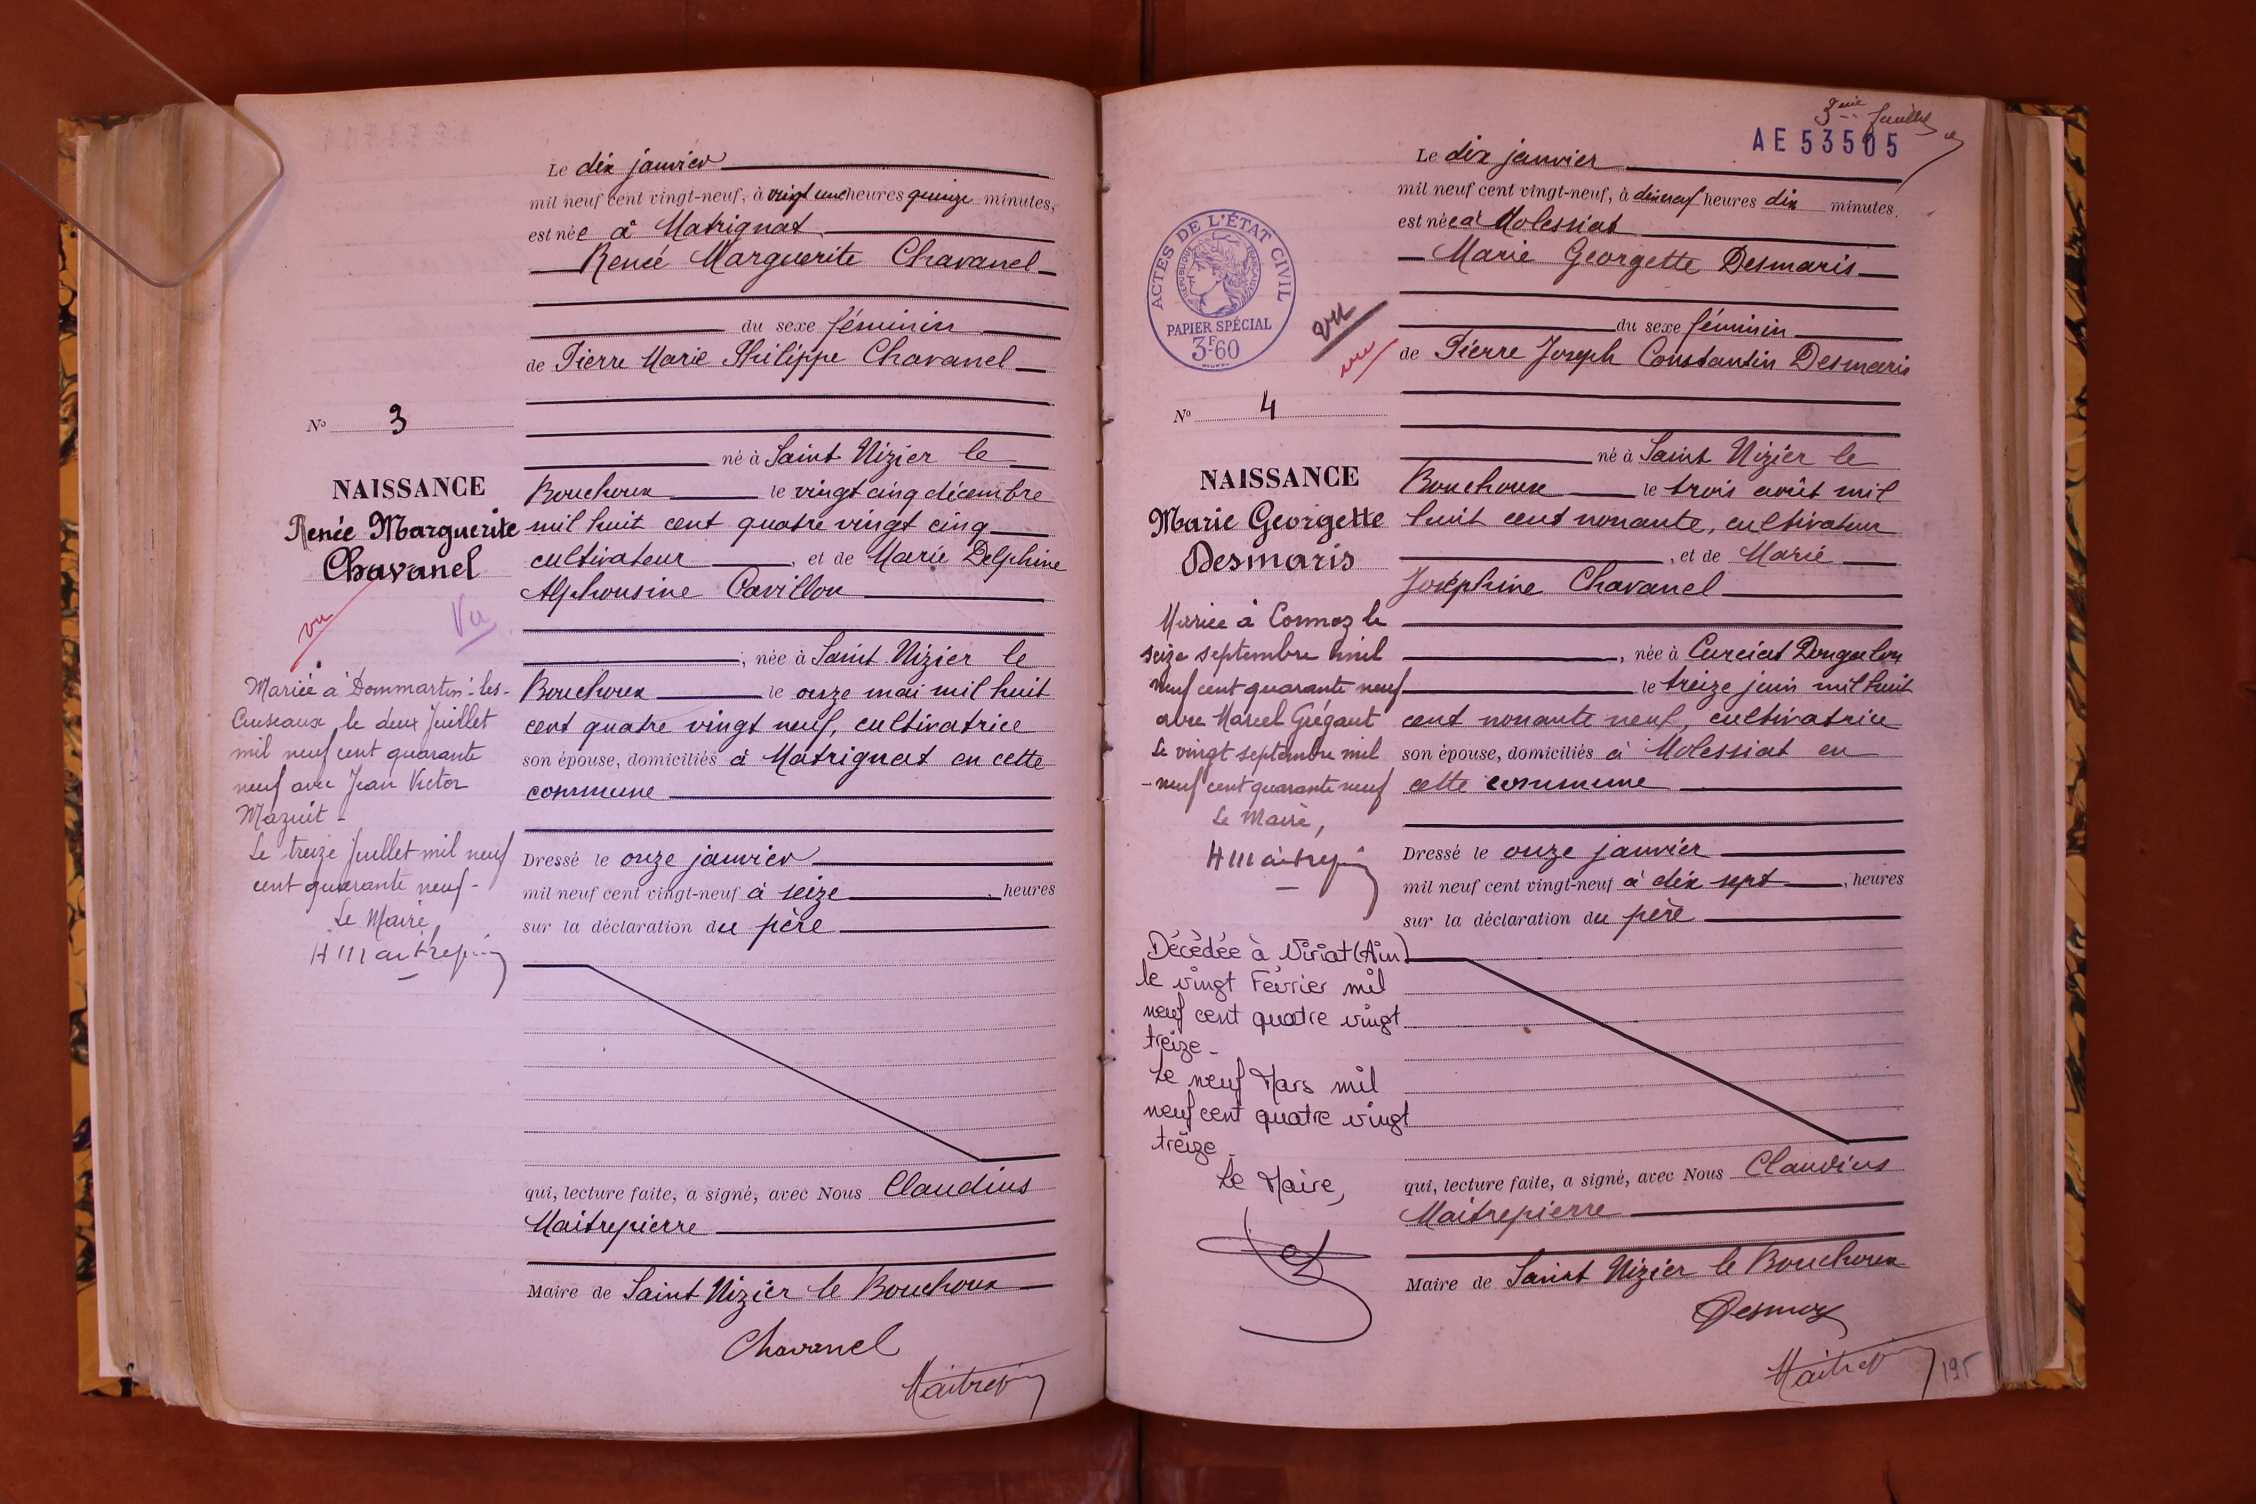 Le dix janvier
mil neuf cent vingt-neuf, à vingt une heures quinze minutes,
est née à Matrignat
Renée Marguerite Chavanel
du sexe féminin
de Pierre Marie Philippe Chavanel
N° 3
né à Saint Nizier le
NAISSANCE
Bouchoux le vingt cinq décembre
Renée Marguerite
Chavanel
mil huit cent quatre vingt cinq
cultivateur, et de Marie Delphine
Alphonsine Cavillon
vu
Vu
, née à Saint Nizier le
Bouchoux le onze mai mil huit
cent quatre vingt neuf, cultivatrice
son épouse, domiciliés à Matrignat en cette
commune
Mariée à Dommartin-les-
Cuiseaux, le deux Juillet
mil neuf cent quarante
neuf avec Jean Victor
Mazuit -
Le treize Juillet mil neuf
cent quarante neuf -
Le Maire,
H Maitrepierre
Dressé le onze janvier
mil neuf cent vingt-neuf à seize, heures
sur la déclaration du père
qui, lecture faite, a signé, avec Nous Claudius
Maitrepierre
Maire de Saint Nizier le Bouchoux
Chavanel
Maitrepierre
3eme feuillet
AE 53505
Le dix janvier
mil neuf cent vingt-neuf, à dix neuf heures dix minutes,
est née à Molessiat
Marie Georgette Desmaris
ACTES DE L'ÉTAT CIVIL
RÉPUBLIQUE FRANÇAISE
PAPIER SPÉCIAL
3F60
vu
vu
du sexe féminin
de Pierre Joseph Constantin Desmaris
N° 4
né à Saint Nizier le
NAISSANCE
Bouchoux le trois août mil
Marie Georgette
Desmaris
huit cent nonante, cultivateur
, et de Marie
Joséphine Chavanel
, née à Curciat Dongalon
le treize juin mil huit
cent nonante neuf, cultivatrice
son épouse, domiciliés à Molessiat en
cette commune
Mariée à Cormoz le
seize septembre mil
neuf cent quarante neuf
avec Marcel Grégaut
Le vingt septembre mil
neuf cent quarante neuf
Le Maire,
H Maitrepierre
Dressé le onze janvier
mil neuf cent vingt-neuf à dix sept, heures
sur la déclaration du père
Décédée à Viriat (Ain)
le vingt Février mil
neuf cent quatre vingt
treize -
Le neuf Mars mil
neuf cent quatre vingt
treize -
Le Maire,
qui, lecture faite, a signé, avec Nous Claudius
Maitrepierre
Maire de Saint Nizier le Bouchoux
Maitrepierre
195